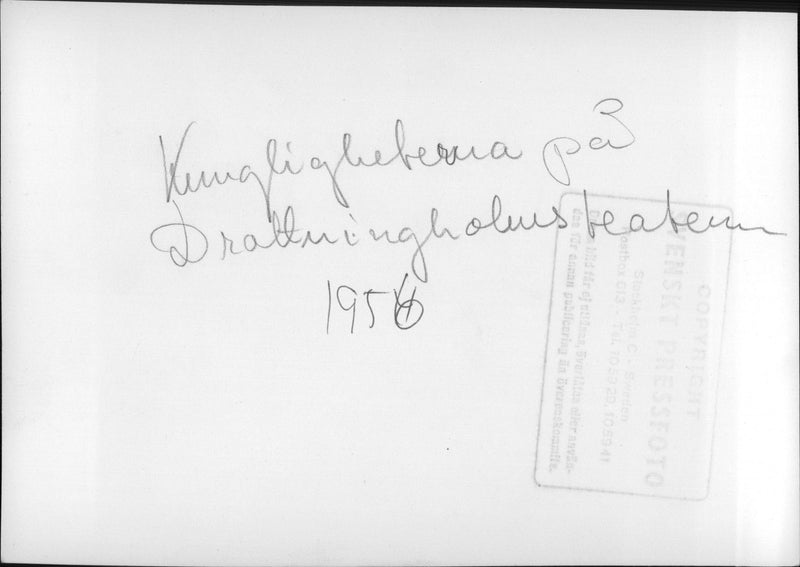 Kungligheterna på
Drottningholmsteatern
1956
COPYRIGHT
SVENSKT PRESSFOTO
Stockholm C - Sweden
Postbox 613 - Tel. 105929, 105941
Denna bild får ej utlånas, överlåtas eller använ-
das för annan publicering än överenskommits.